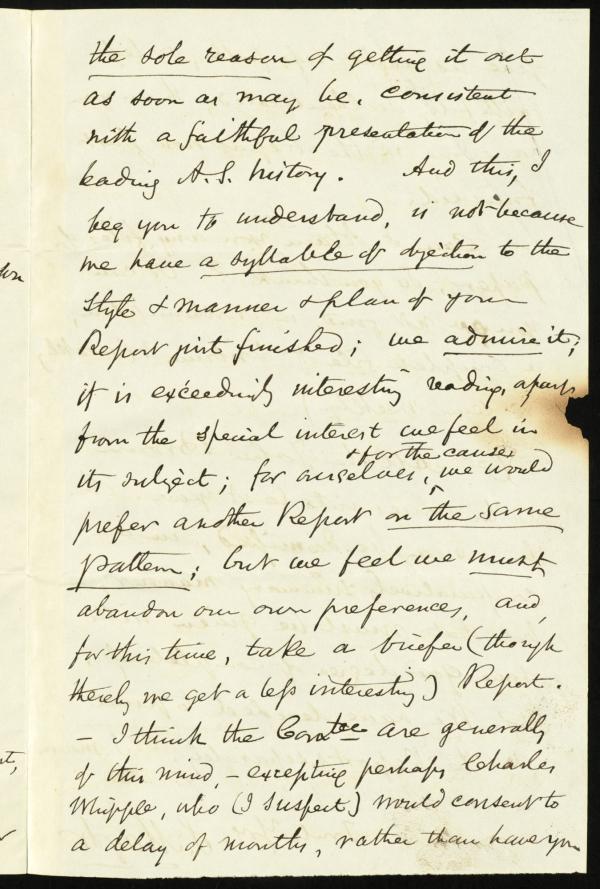 the sole reason of getting it out
as soon as may be, consistent
with a faithful presentation of the
leading A.S. history. And this, I
beg you to understand, is not because
we have a syllable of objection to the
style & manner & plan of your
Report just finished; we admire it;
it is exceedingly interesting reading, apart
from the special interest we feel in
& for the cause
its subject; for ourselves, we would
prefer another Report on the same
pattern; but we feel we must
abandon our own preferences, and,
for this time, take a briefer (though
thereby we get a less interesting) Report.
– I think the Comtee are generally
of this mind, – excepting perhaps Charles
Whipple, who (I suspect) would consent to
a delay of months, rather than have you